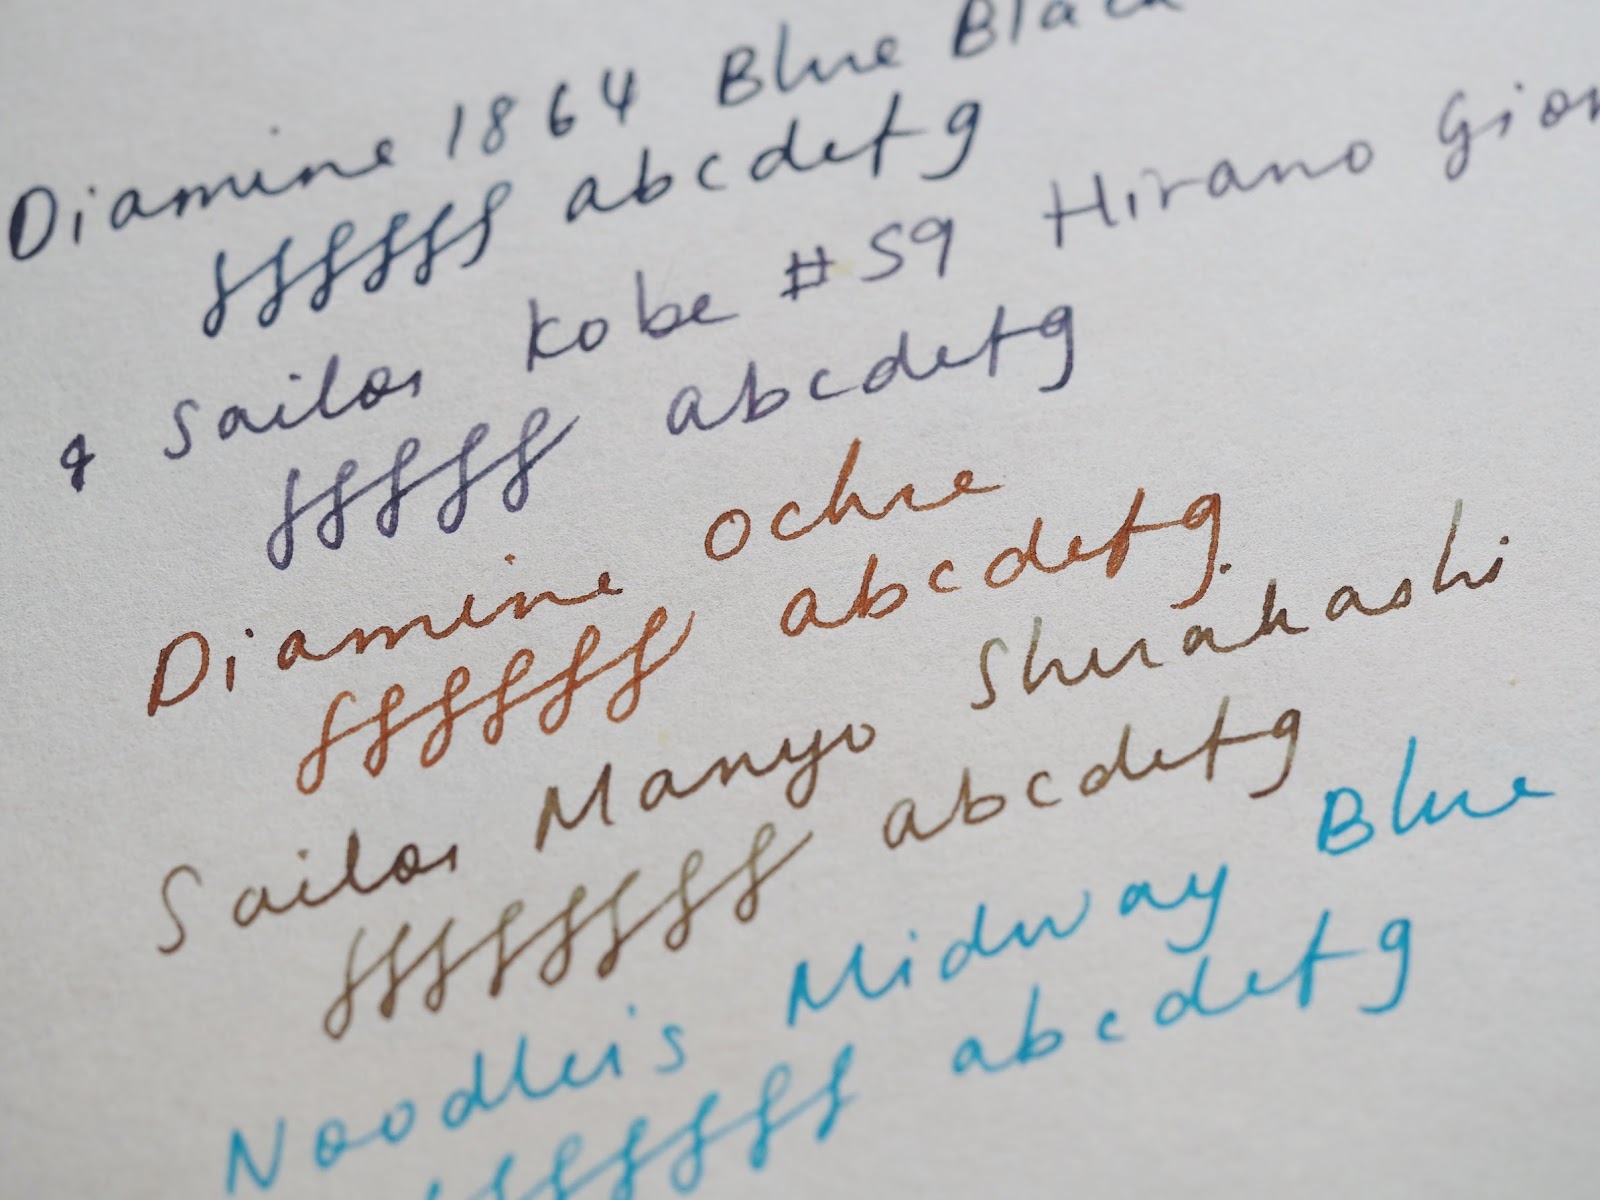 Diamine 1864 Blue Black
fffffff abcdefg
Sailor Kobe #59 Hirano Gion
ffffff abcdefg
Diamine Ochre
fffffff abcdefg.
Sailor Manyo Shirakashi
ffffffff abcdefg
Noodler's Midway Blue
abcdefg